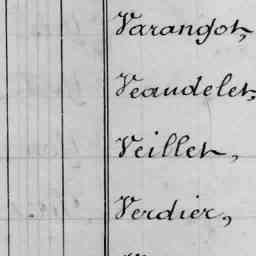 Varangot,
Veaudelet,
Veillet,
Verdier,